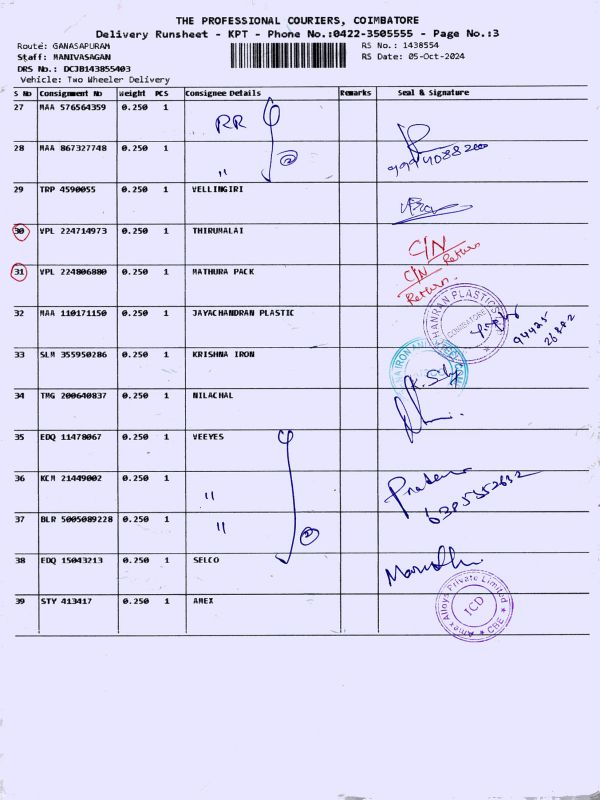 THE PROFESSIONAL COURIERS, COIMBATORE
Delivery Runsheet - KPT - Phone No.:0422-3505555 - Page No.:3
Route: GANASAPURAM
RS No.: 1438554
Staff: MANIVASAGAN
RS Date: 05-Oct-2024
DRS No.: DCJB143855403
Vehicle: Two Wheeler Delivery
S No Consignment No Weight PCS Consignee Details Remarks Seal & Signature
27 MAA 576564359 0.250 1 RR
28 MAA 867327748 0.250 1 "
29 TRP 4590055 0.250 1 VELLINGIRI
30 VPL 224714973 0.250 1 THIRUMALAI C/N Return
31 VPL 224806880 0.250 1 MATHURA PACK C/N Return.
32 MAA 110171150 0.250 1 JAYACHANDRAN PLASTIC COIMBATORE 94425 26882
33 SLM 355950286 0.250 1 KRISHNA IRON
34 TMG 200640837 0.250 1 NILACHAL
35 EDQ 11478067 0.250 1 VEEYES
36 KCM 21449002 0.250 1 "
37 BLR 5005089228 0.250 1 "
38 EDQ 15043213 0.250 1 SELCO
39 STY 413417 0.250 1 AMEX Amex Alloys Private Limited ICD CBE